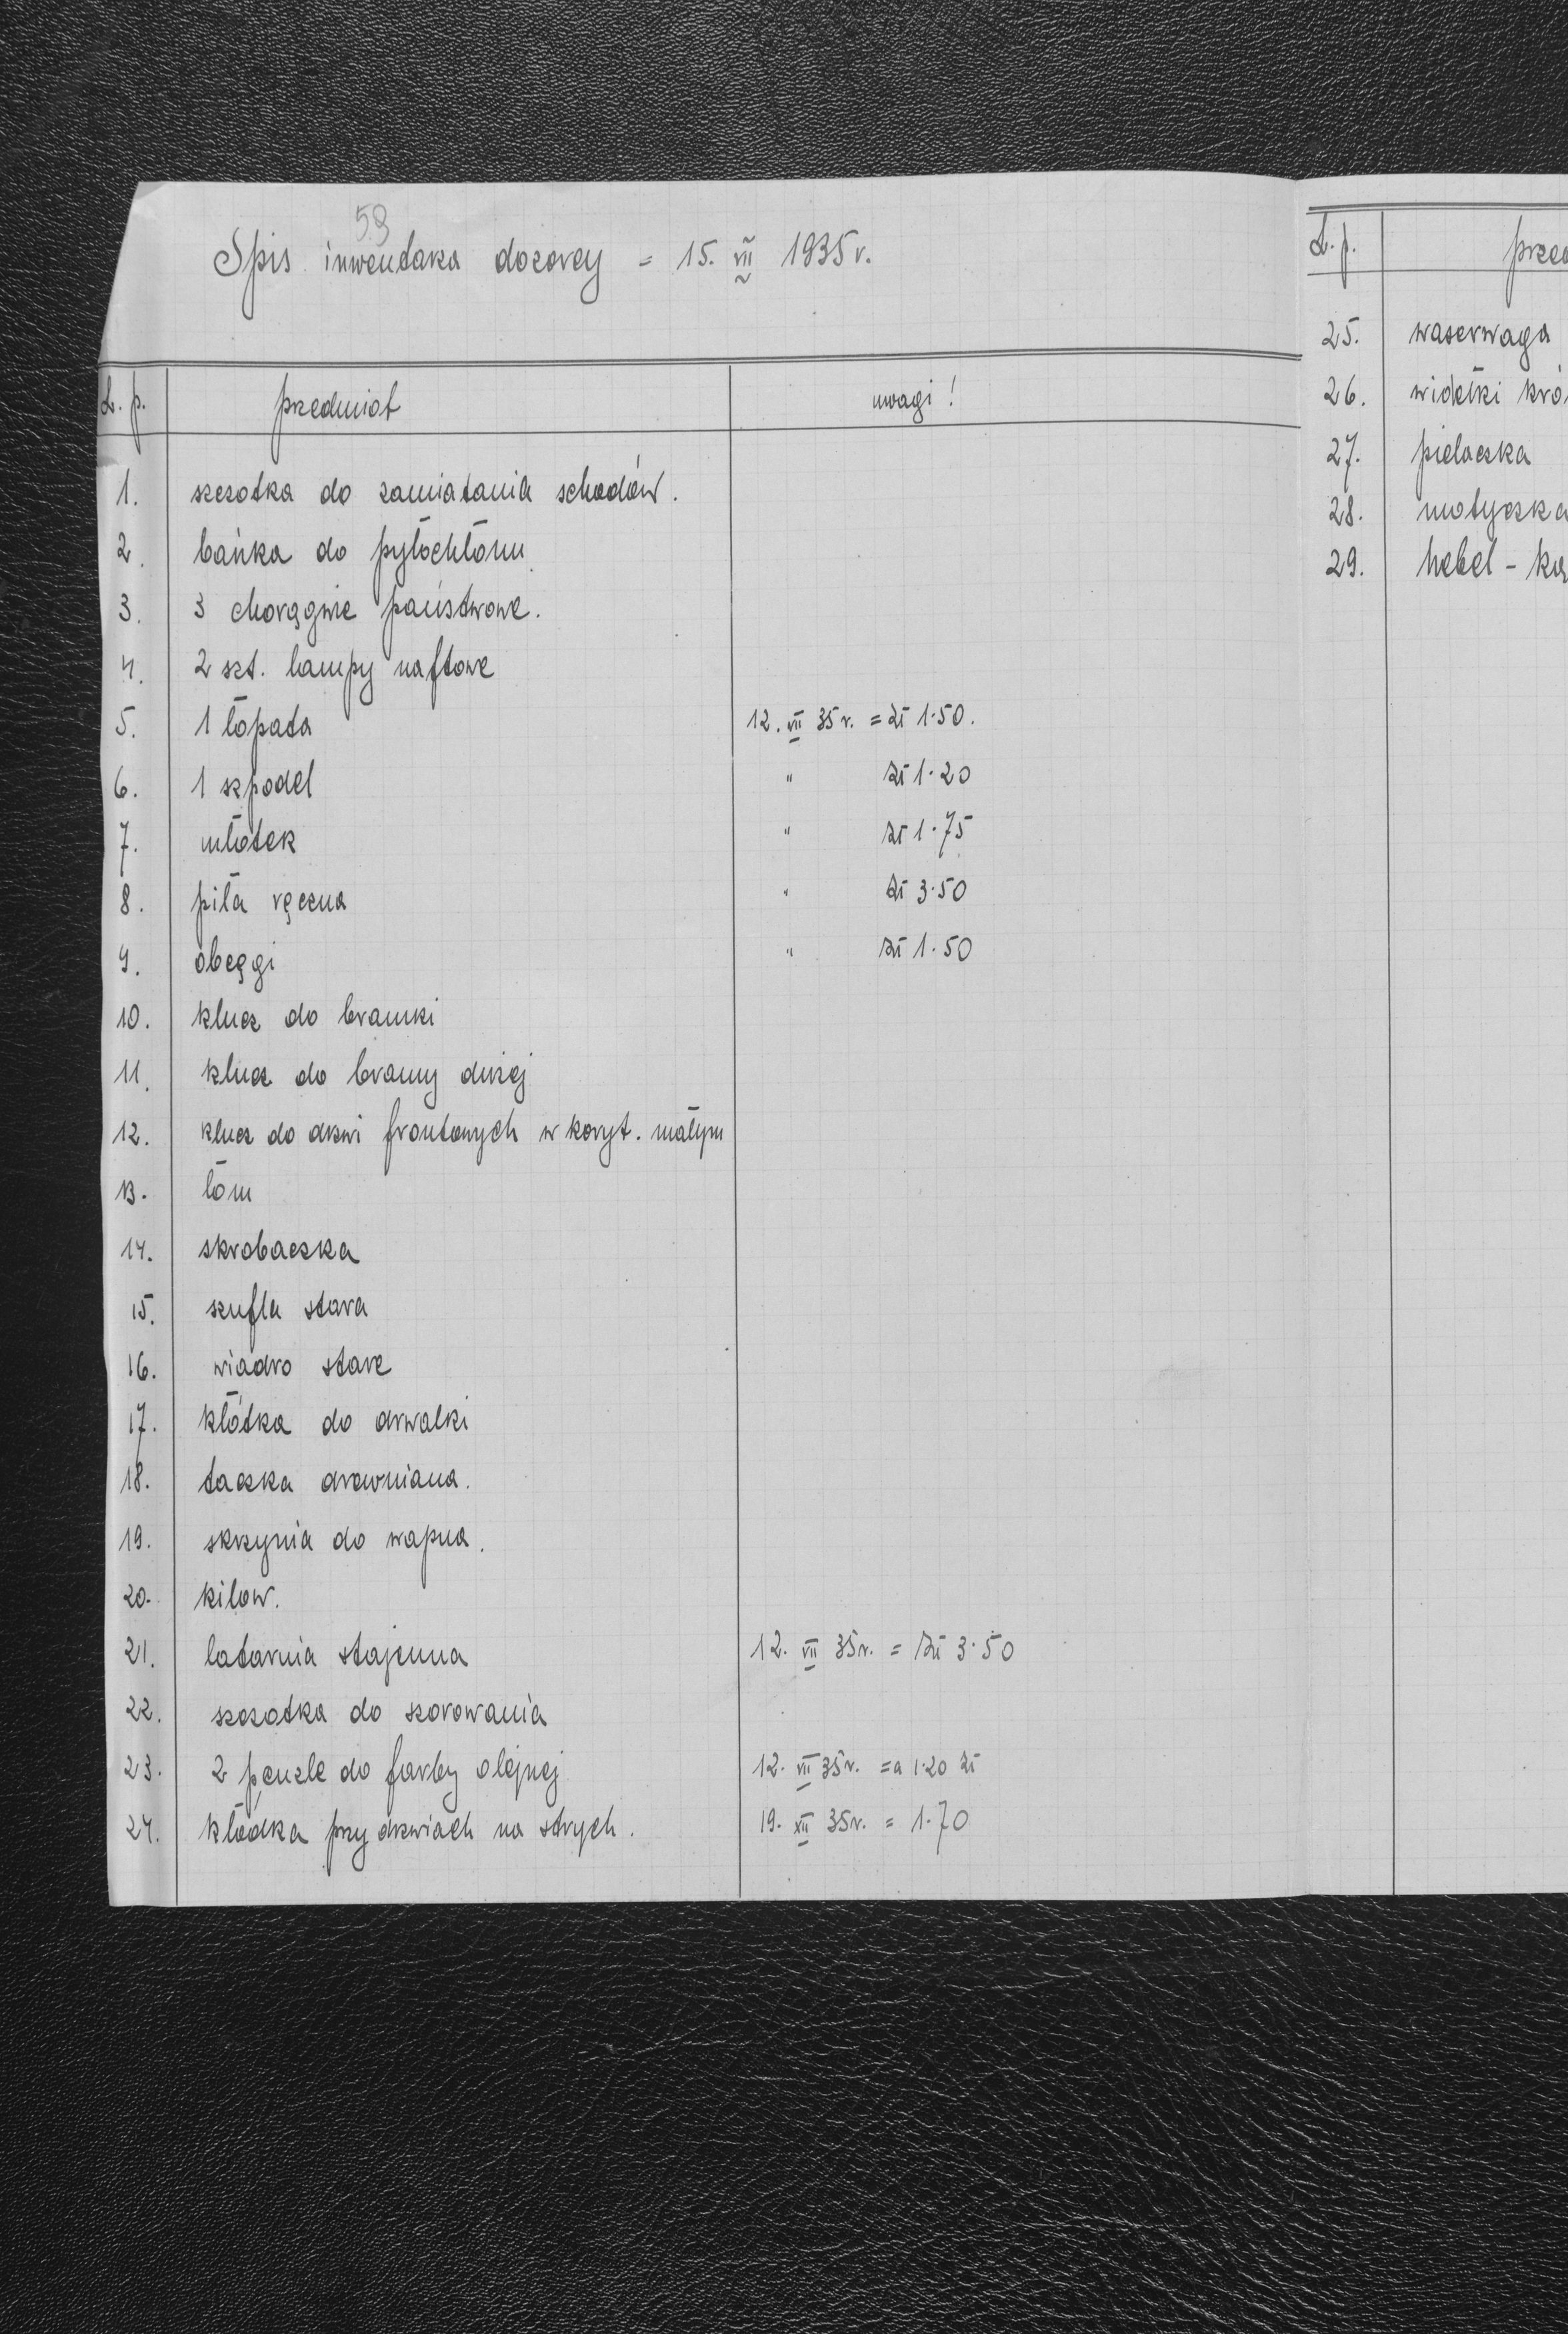 59
Spis inwentarza dozorcy = 15. VII 1935 r.
L. p. przedmiot uwagi!
1. szczotka do zamiatania schodów.
2. bańka do pyłochłonu.
3. 3 chorągwie państwowe.
4. 2 szt. lampy naftowe
5. 1 łopata 12. VII 35 r. = zł 1.50.
6. 1 szpadel " zł 1.20
7. młotek " zł 1.75
8. piła ręczna " zł 3.50
9. obcęgi " zł 1.50
10. klucz do bramki
11. klucz do bramy dużej
12. klucz do drzwi frontowych w koryt. małym
13. łom
14. skrobaczka
15. szufla stara
16. wiadro stare
17. kłótka do drwalki
18. taczka drewniana.
19. skrzynia do wapna.
20. kilow.
21. latarnia stajenna 12. VII 35r. = zł 3.50
22. szczotka do szorowania
23. 2 penzle do farby olejnej 12. VII 35r. = a 1.20 zł
24. kłódka przy drzwiach na strych. 19. XII 35r. = 1.70
L. p. przed
25. waserwaga
26. widełki kró
27. pielaczka
28. motyczka
29. hebel -